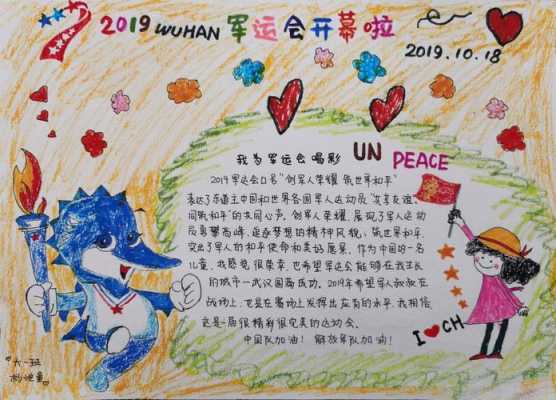 2019 WUHAN 军运会开幕啦
2019.10.18
我为军运会喝彩
UN PEACE
2019军运会口号"创军人荣耀 筑世界和平"
表达了东道主中国和世界各国军人运动员"共享友谊、
同筑和平"的共同心声。创军人荣耀,展现了军人运动
员勇攀高峰、追逐梦想的精神风貌,筑世界和平,
突出了军人的和平使命和美好愿景。作为中国的一名
儿童,我感觉很荣幸,也希望军运会能够在我生长
的城市—武汉圆满成功。2019年希望军人叔叔在
战场上,也是在赛场上发挥出应有的水平,我相信
这是一届很精彩很完美的运动会。
中国队加油! 解放军队加油!
I CH
大一班